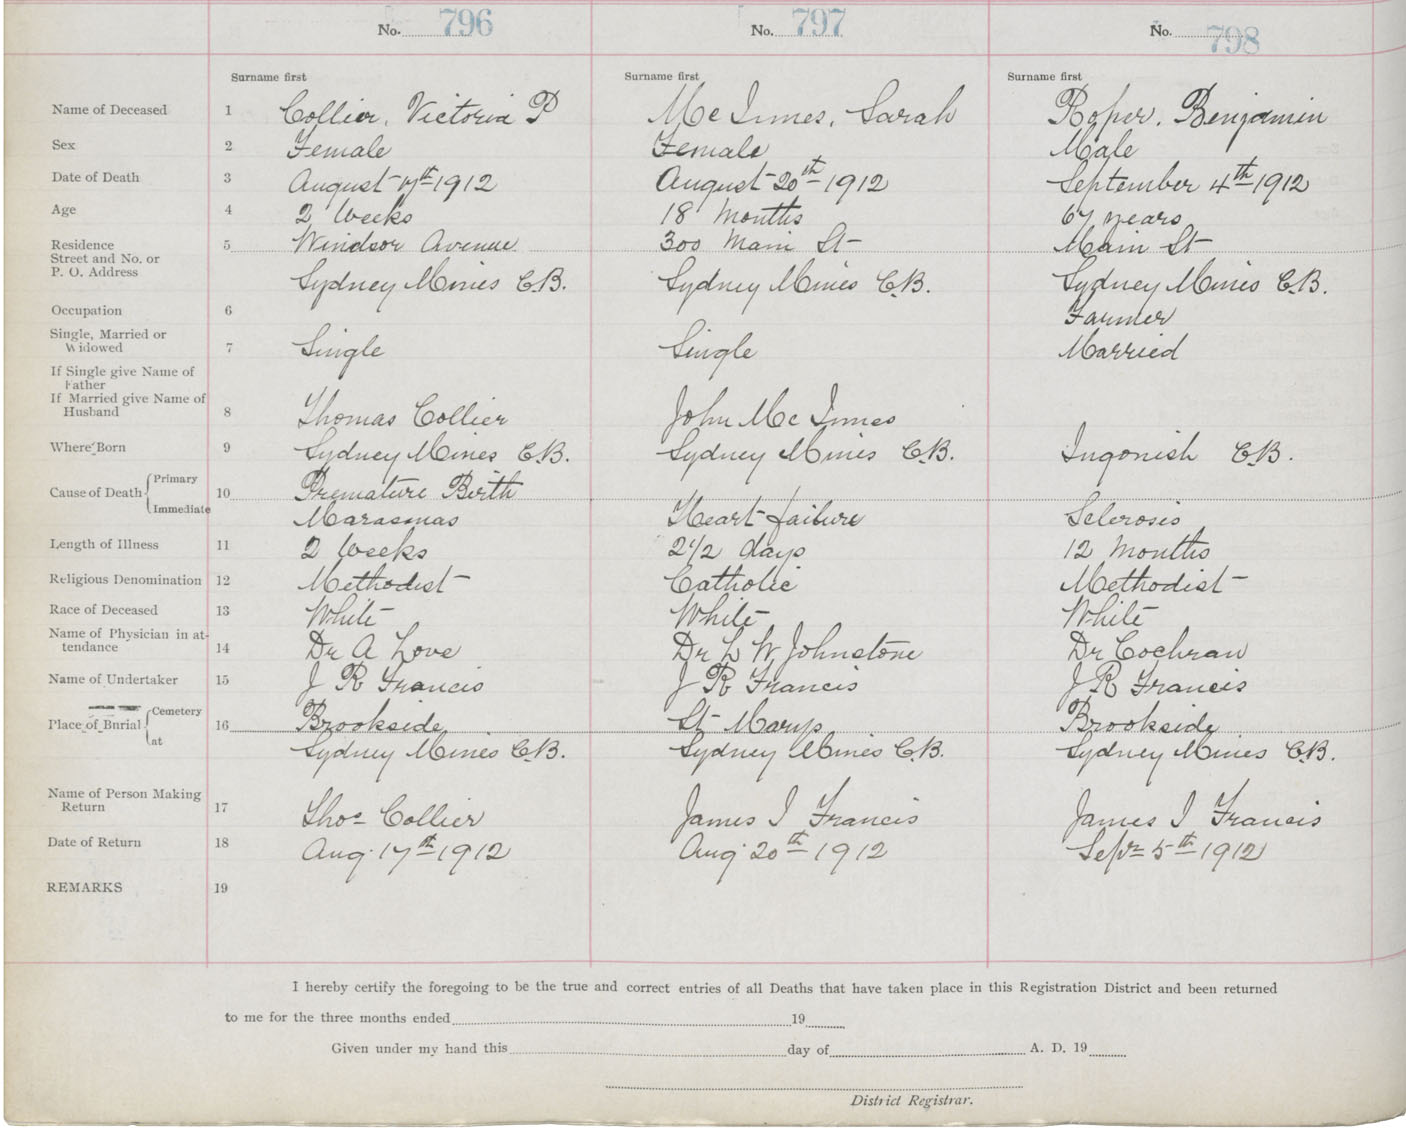 No. 796 No. 797 No. 798
Surname first Surname first Surname first
Name of Deceased 1 Collier, Victoria P Mc Innes, Sarah Roper, Benjamin
Sex 2 Female Female Male
Date of Death 3 August 17th 1912 August 20th 1912 September 4th 1912
Age 4 2 Weeks 18 Months 67 years
Residence 5 Windsor Avenue 300 Main St Main St
Street and No. or
P. O. Address Sydney Mines C.B. Sydney Mines C.B. Sydney Mines C.B.
Occupation 6 Farmer
Single, Married or
Widowed 7 Single Single Married
If Single give Name of
Father
If Married give Name of
Husband 8 Thomas Collier John Mc Innes
Where Born 9 Sydney Mines C.B. Sydney Mines C.B. Ingonish C.B.
Primary
Cause of Death 10 Premature Birth
Immediate Marasmas Heart failure Sclerosis
Length of Illness 11 2 Weeks 2 1/2 days 12 Months
Religious Denomination 12 Methodist Catholic Methodist
Race of Deceased 13 White White White
Name of Physician in at-
tendance 14 Dr A Love Dr L W Johnstone Dr Cochran
Name of Undertaker 15 J R Francis J R Francis J R Francis
Cemetery
Place of Burial 16 Brookside St Marys Brookside
at Sydney Mines C.B. Sydney Mines C.B. Sydney Mines C.B.
Name of Person Making
Return 17 Thos Collier James I Francis James I Francis
Date of Return 18 Aug. 17th 1912 Aug. 20th 1912 Sepr 5th 1912
REMARKS 19
I hereby certify the foregoing to be the true and correct entries of all Deaths that have taken place in this Registration District and been returned
to me for the three months ended 19
Given under my hand this day of A. D. 19
District Registrar.